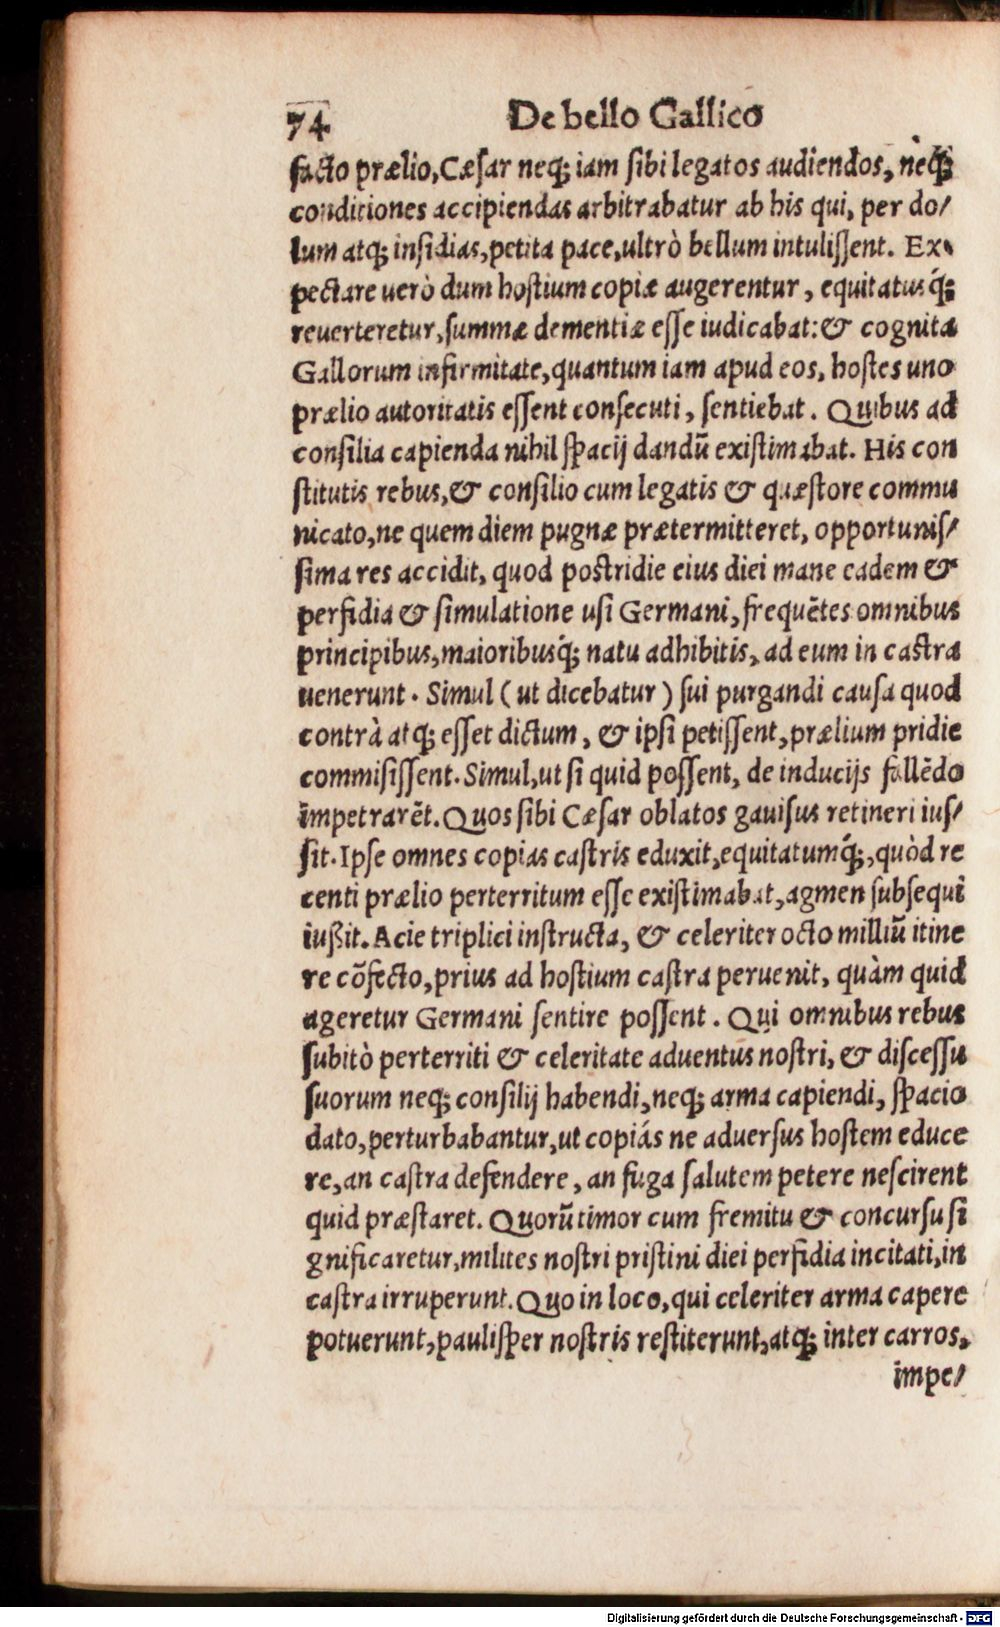 74 De bello Gallico
facto prælio, Cæſar neq; iam ſibi legatos audiendos, neq́;
conditiones accipiendas arbitrabatur ab his qui, per do/
lum atq; inſidias, petita pace, ultrò bellum intuliſſent. Ex⸗
pectare uerò dum hoſtium copiæ augerentur, equitatusq́;
reuerteretur, ſummæ dementiæ eſſe iudicabat: & cognita
Gallorum infirmitate, quantum iam apud eos, hoſtes uno
prælio autoritatis eſſent conſecuti, ſentiebat. Quibus ad
conſilia capienda nihil ſpacij dandũ exiſtimabat. His con
ſtitutis rebus, & conſilio cum legatis & quæſtore commu
nicato, ne quem diem pugnæ prætermitteret, opportuniſ/
ſima res accidit, quod poſtridie eius diei mane eadem &
perfidia & ſimulatione uſi Germani, frequẽtes omnibus
principibus, maioribusq́; natu adhibitis, ad eum in caſtra
uenerunt. Simul (ut dicebatur) ſui purgandi cauſa quod
contrà atq; eſſet dictum, & ipſi petiſſent, prælium pridie
commiſiſſent. Simul, ut ſi quid poſſent, de inducijs fallẽdo
impetrarẽt. Quos ſibi Cæſar oblatos gauiſus retineri iuſ/
ſit. Ipſe omnes copias caſtris eduxit, equitatumq́;, quòd re
centi prælio perterritum eſſe exiſtimabat, agmen ſubſequi
iußit. Acie triplici inſtructa, & celeriter octo milliũ itine
re cõfecto, prius ad hoſtium caſtra peruenit, quàm quid
ageretur Germani ſentire poſſent. Qui omnibus rebus
ſubitò perterriti & celeritate aduentus noſtri, & diſceſſu
ſuorum neq; conſilij habendi, neq; arma capiendi, ſpacio
dato, perturbabantur, ut copiás ne aduerſus hoſtem educe
re, an caſtra defendere, an fuga ſalutem petere neſcirent
quid præſtaret. Quorũ timor cum fremitu & concurſu ſi
gnificaretur, milites noſtri priſtini diei perfidia incitati, in
caſtra irruperunt. Quo in loco, qui celeriter arma capere
potuerunt, pauliſper noſtris reſtiterunt, atq; inter carros,
impe/
Digitalisierung gefördert durch die Deutsche Forschungsgemeinschaft - DFG